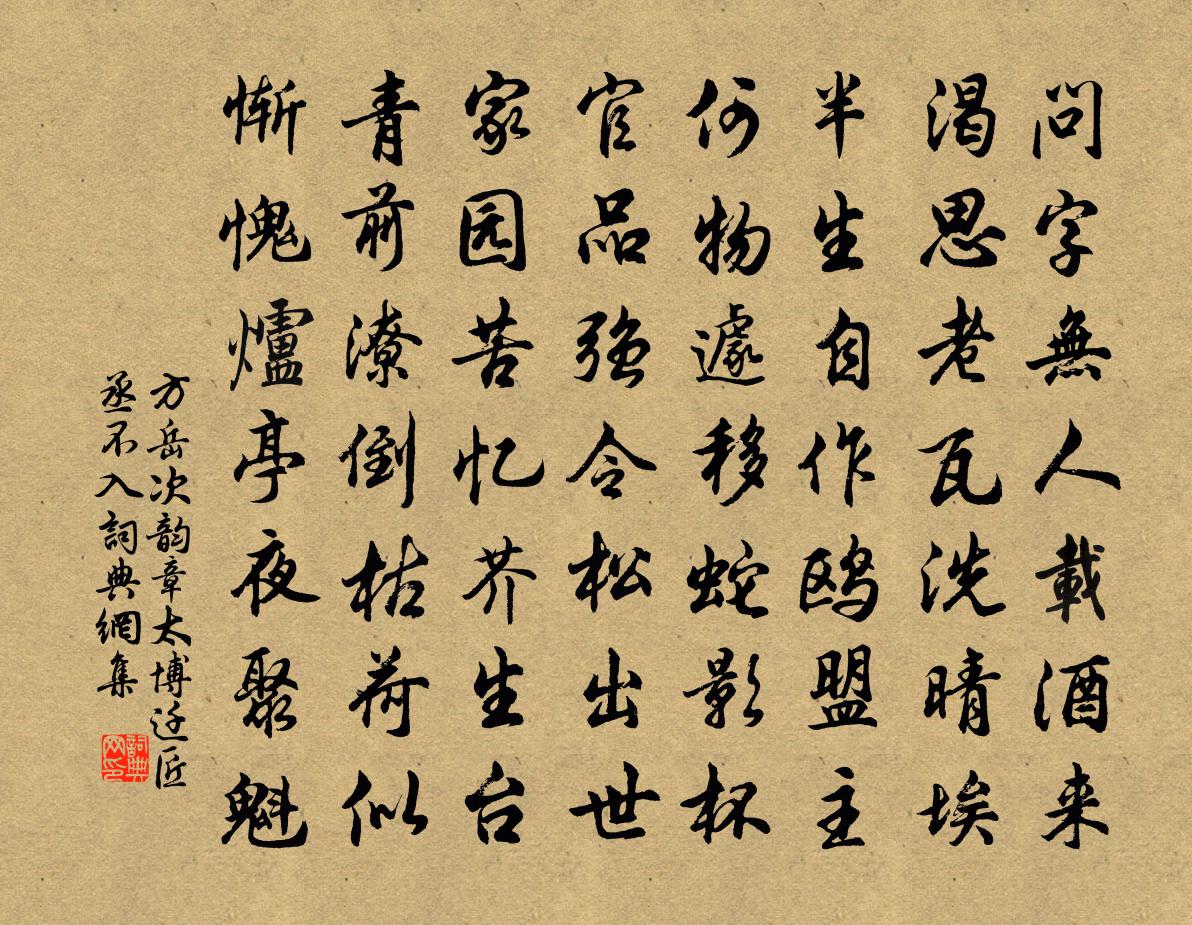 问字無人載酒来
渴思老瓦洗晴埃
半生自作鸥盟主
何物遽移蛇影杯
官品强令松出世
家园苦忆芥生台
青前潦倒枯荷似
惭愧爐亭夜聚魁
方岳次韵章太博迁匠
丞不入詞典網集
詞典网印